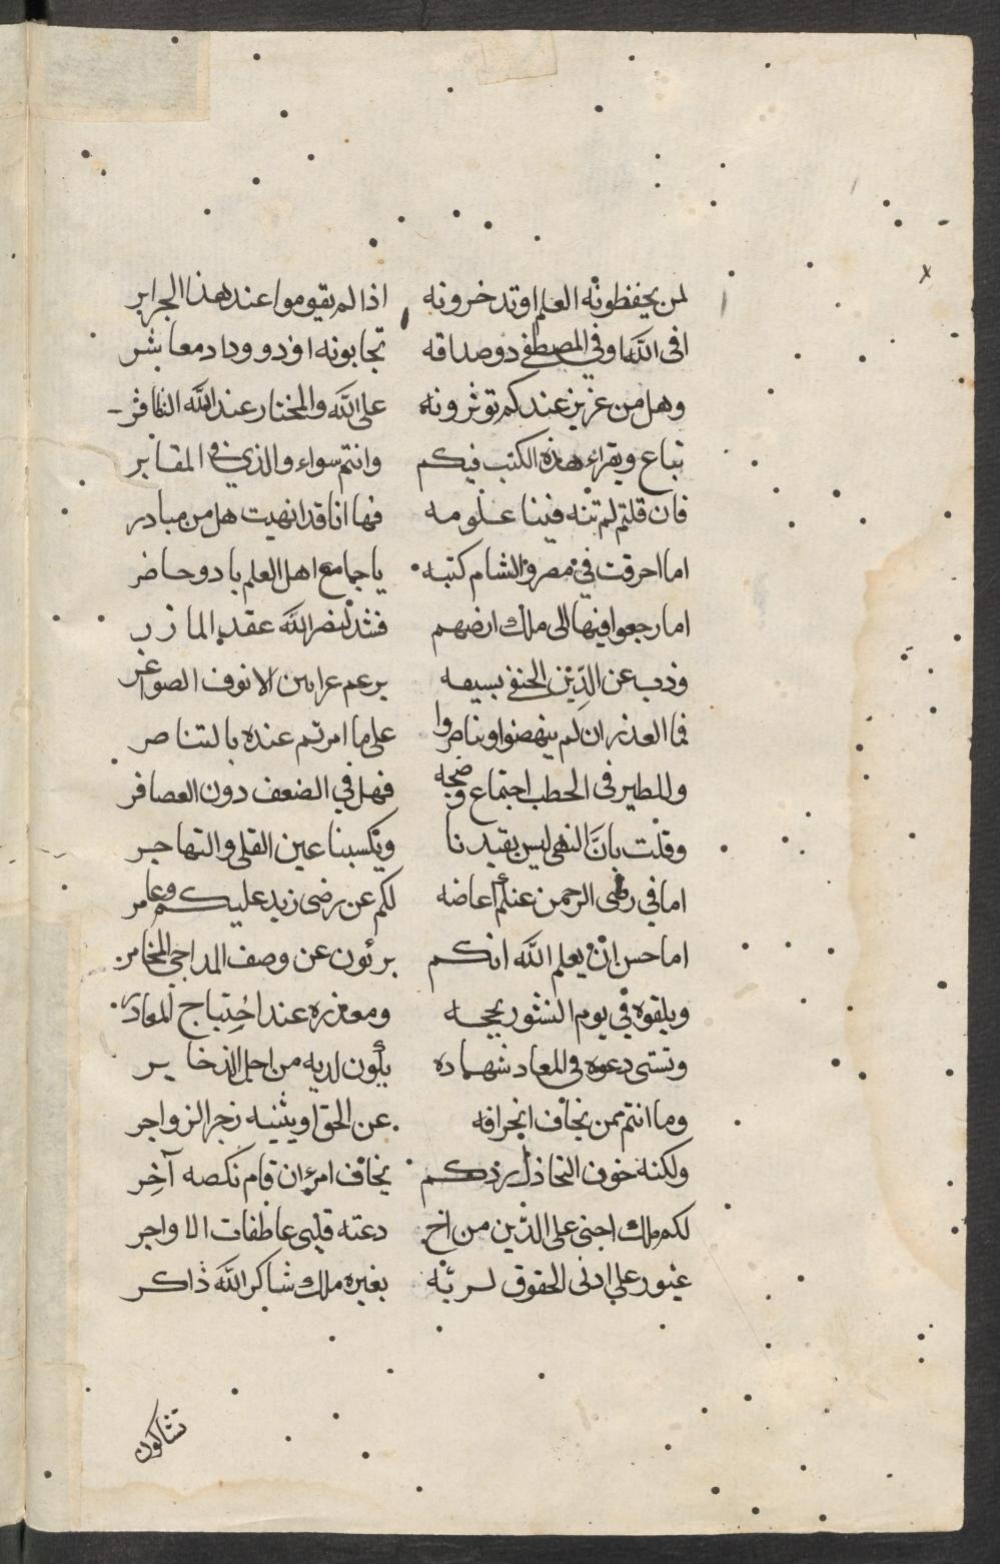 لمن يحفظونه العلم او تدخرونه اذا لم يقوموا عند هذا الجراير
افي الله او في المصطفى ذو صداقه تحابونه او ذو وداد معاشر
وهل من عزيز عندكم توثرونه على الله والمختار عند الله التنافر
تباع ويقراء هذه الكتب فيكم وانتم سواء والذي في المقابر
فان قلتم لم تنه فينا علومه فها انا قد انهيت هل من مبادر
اما احرقت في مصر والشام كتبه يا جامع اهل العلم باد وحاضر
اما رجعوا فيها الى ملك ارضهم فشد لنصر الله عقد المازر
وذب عن الدين الحنفي بسيفه برغم عرانين الانوف الصواغر
فما العذر ان لم ينهضوا ويناصروا على ما امرتم عنده بالتناصر
وللطير في الخطب اجتماع وضجه فهل في الضعف دون العصافر
وقلت بان النهي ليس يفيدنا ويكسبنا عين القلى والتهاجر
اما في رضى الرحمن عنكم اعاضه لكم عن رضى زيد عليكم وعامر
اما حسن ان يعلم الله انكم برئون عن وصف المداجي المخامر
ويلقوه في يوم النشور بحجه ومعذره عند احتياج المعاذر
وتستى دعوه في المعاد شهاده يكون لديه من اجل الذخاير
وما انتم ممن يخاف انحرافه عن الحق او يثنيه زجر الزواجر
ولكنه خوف التخاذل بردكم يخاف امرء ان قام نكصه آخر
لكم ملك احنى على الدين من اخ دعته قلبى عاطفات الاواجر
غيور على ادنى الحقوق لربه بغيره ملك شاكر الله ذاكر
تشاكون